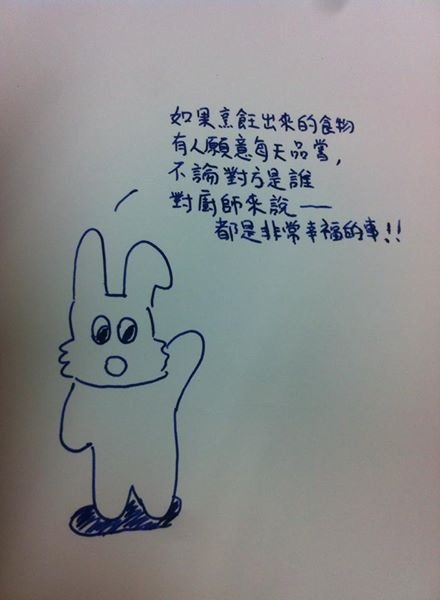 如果烹飪出來的食物
有人願意每天品嘗,
不論對方是誰
對廚師來說——
都是非常幸福的事!!